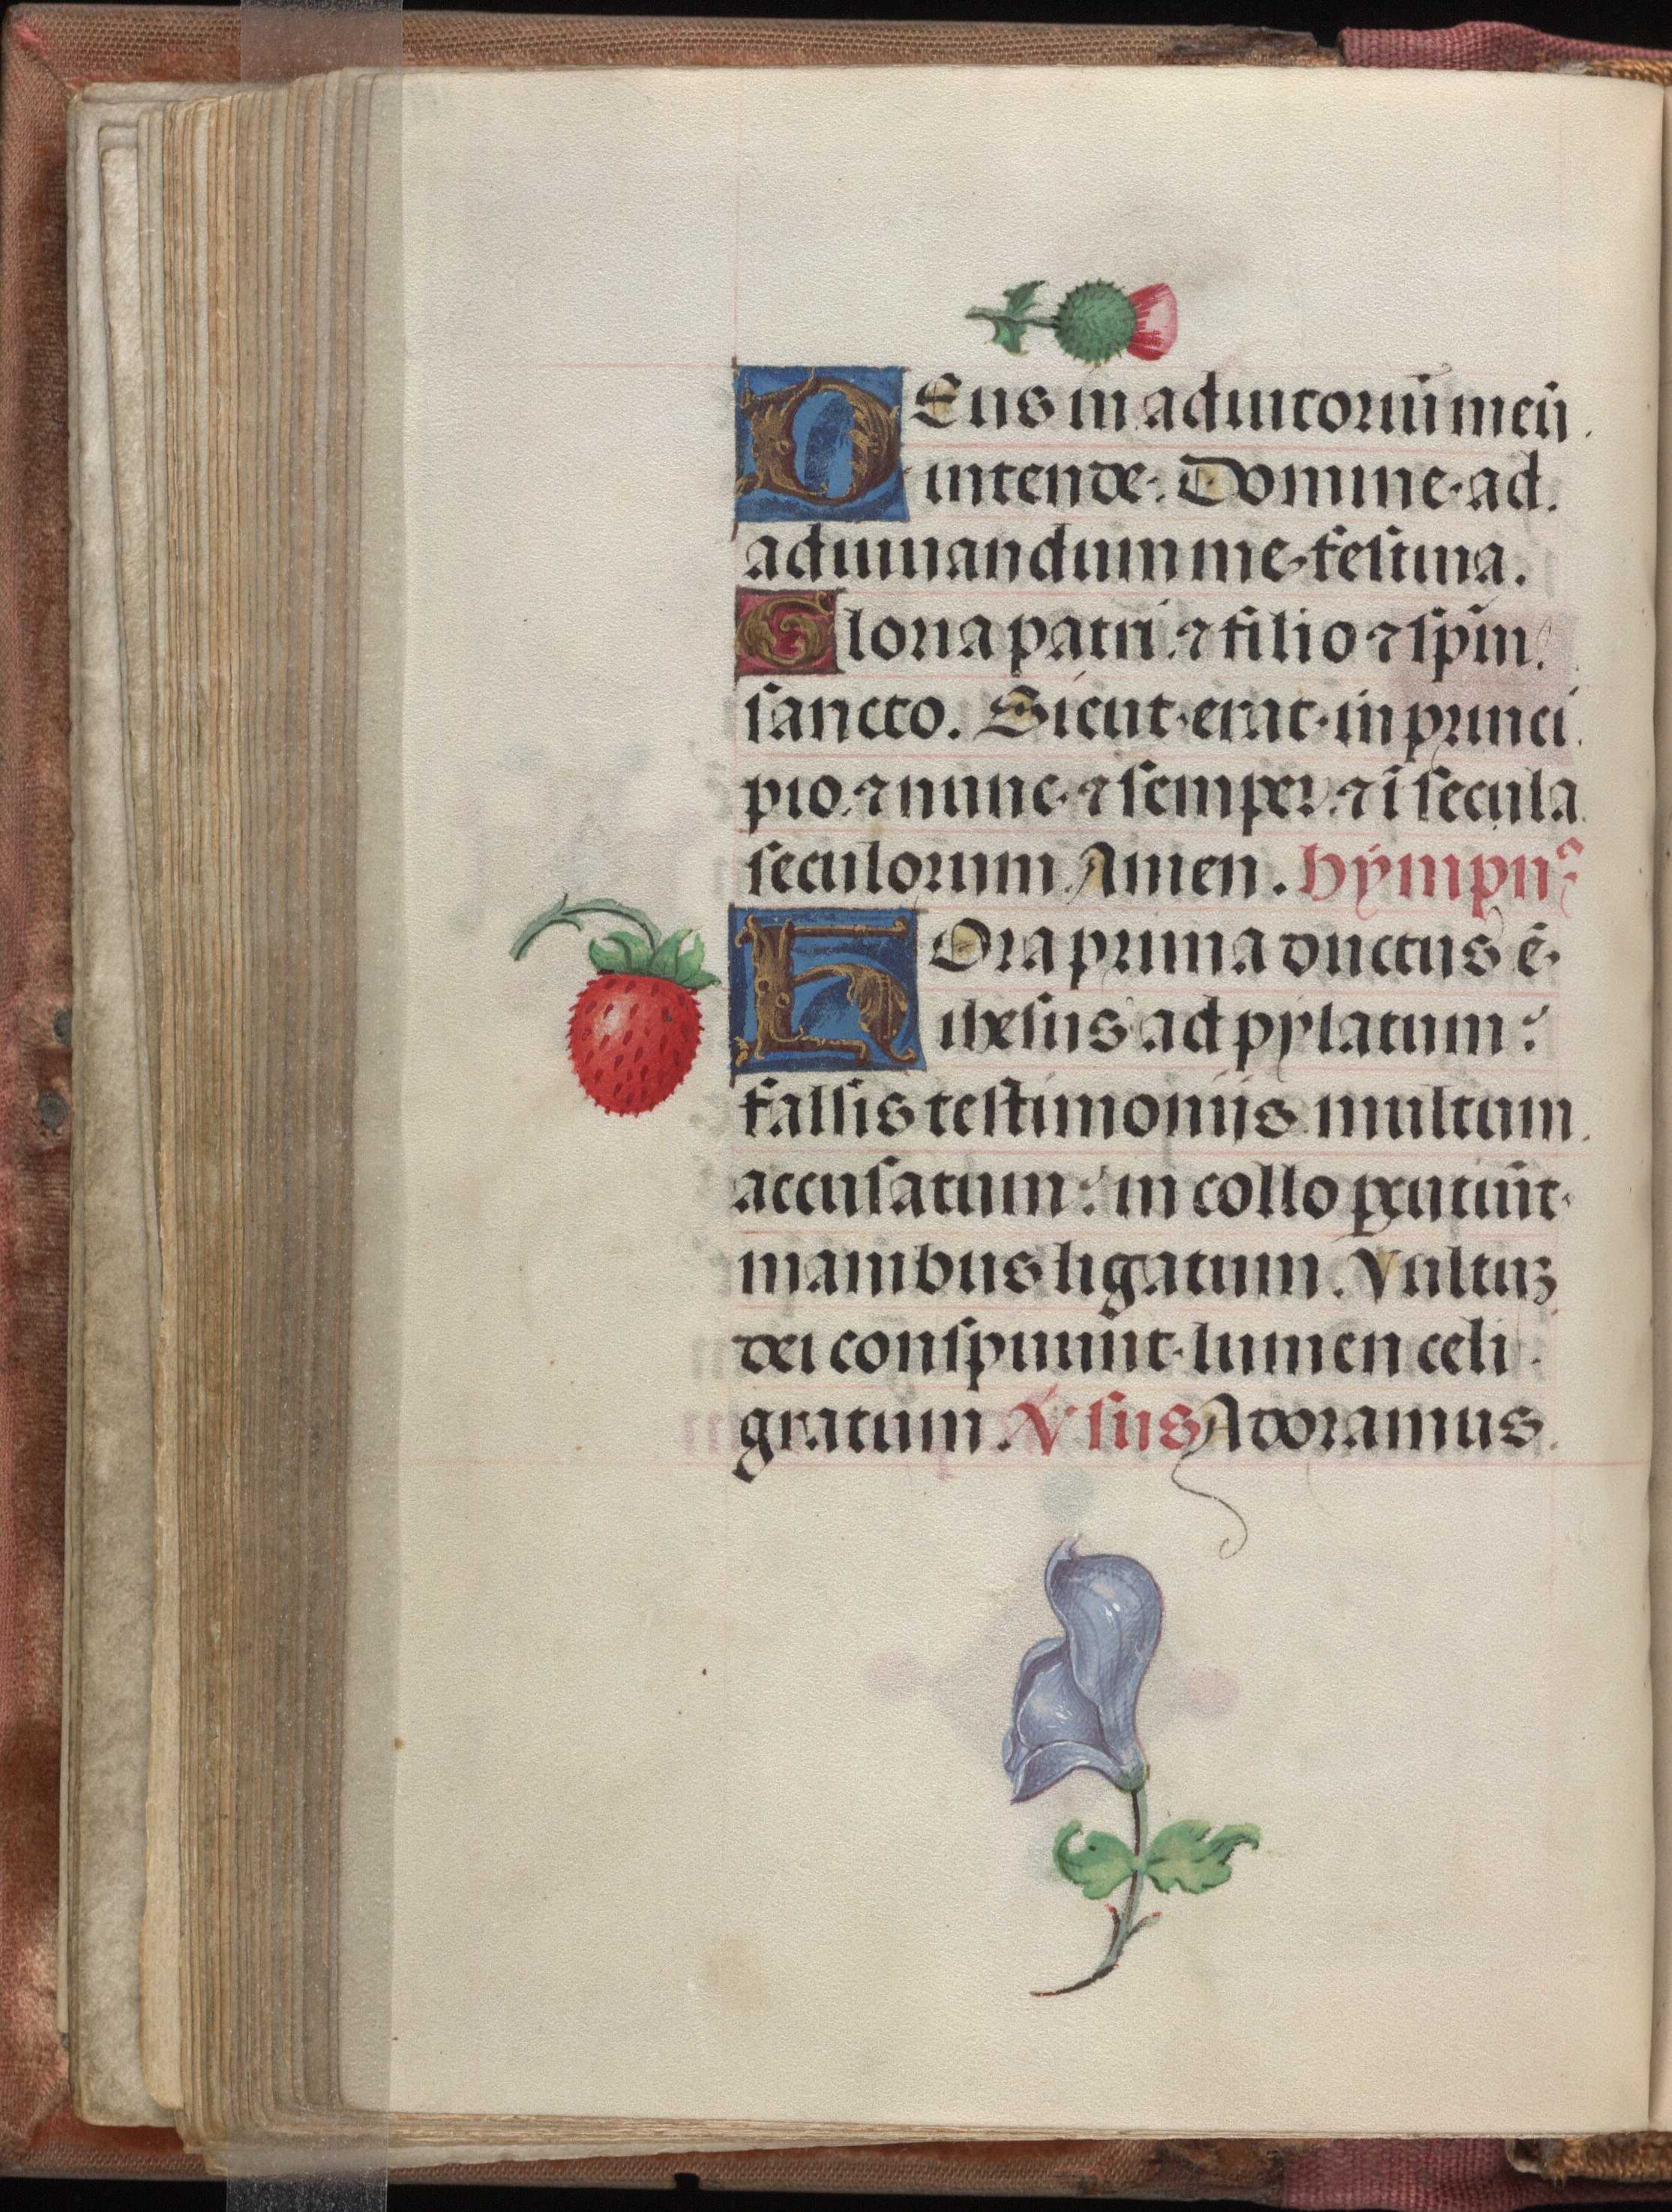 DEus in adiutoriū meū
intende. Domine ad
adiuuandum me festina.
Gloria patri ⁊ filio ⁊ sp̄ui
sancto. Sicut erat in princi
pio ⁊ nunc ⁊ semper ⁊ ī secula
seculorum Amen. hympnꝰ
HOra prima ductus ē
ihesus ad pylatum:
falsis testimoniis multum
accusatum: in collo ꝑcutiūt
manibus ligatum. Vultuꝫ
dei conspuunt lumen celi
gratum. V̓sus Adoramus